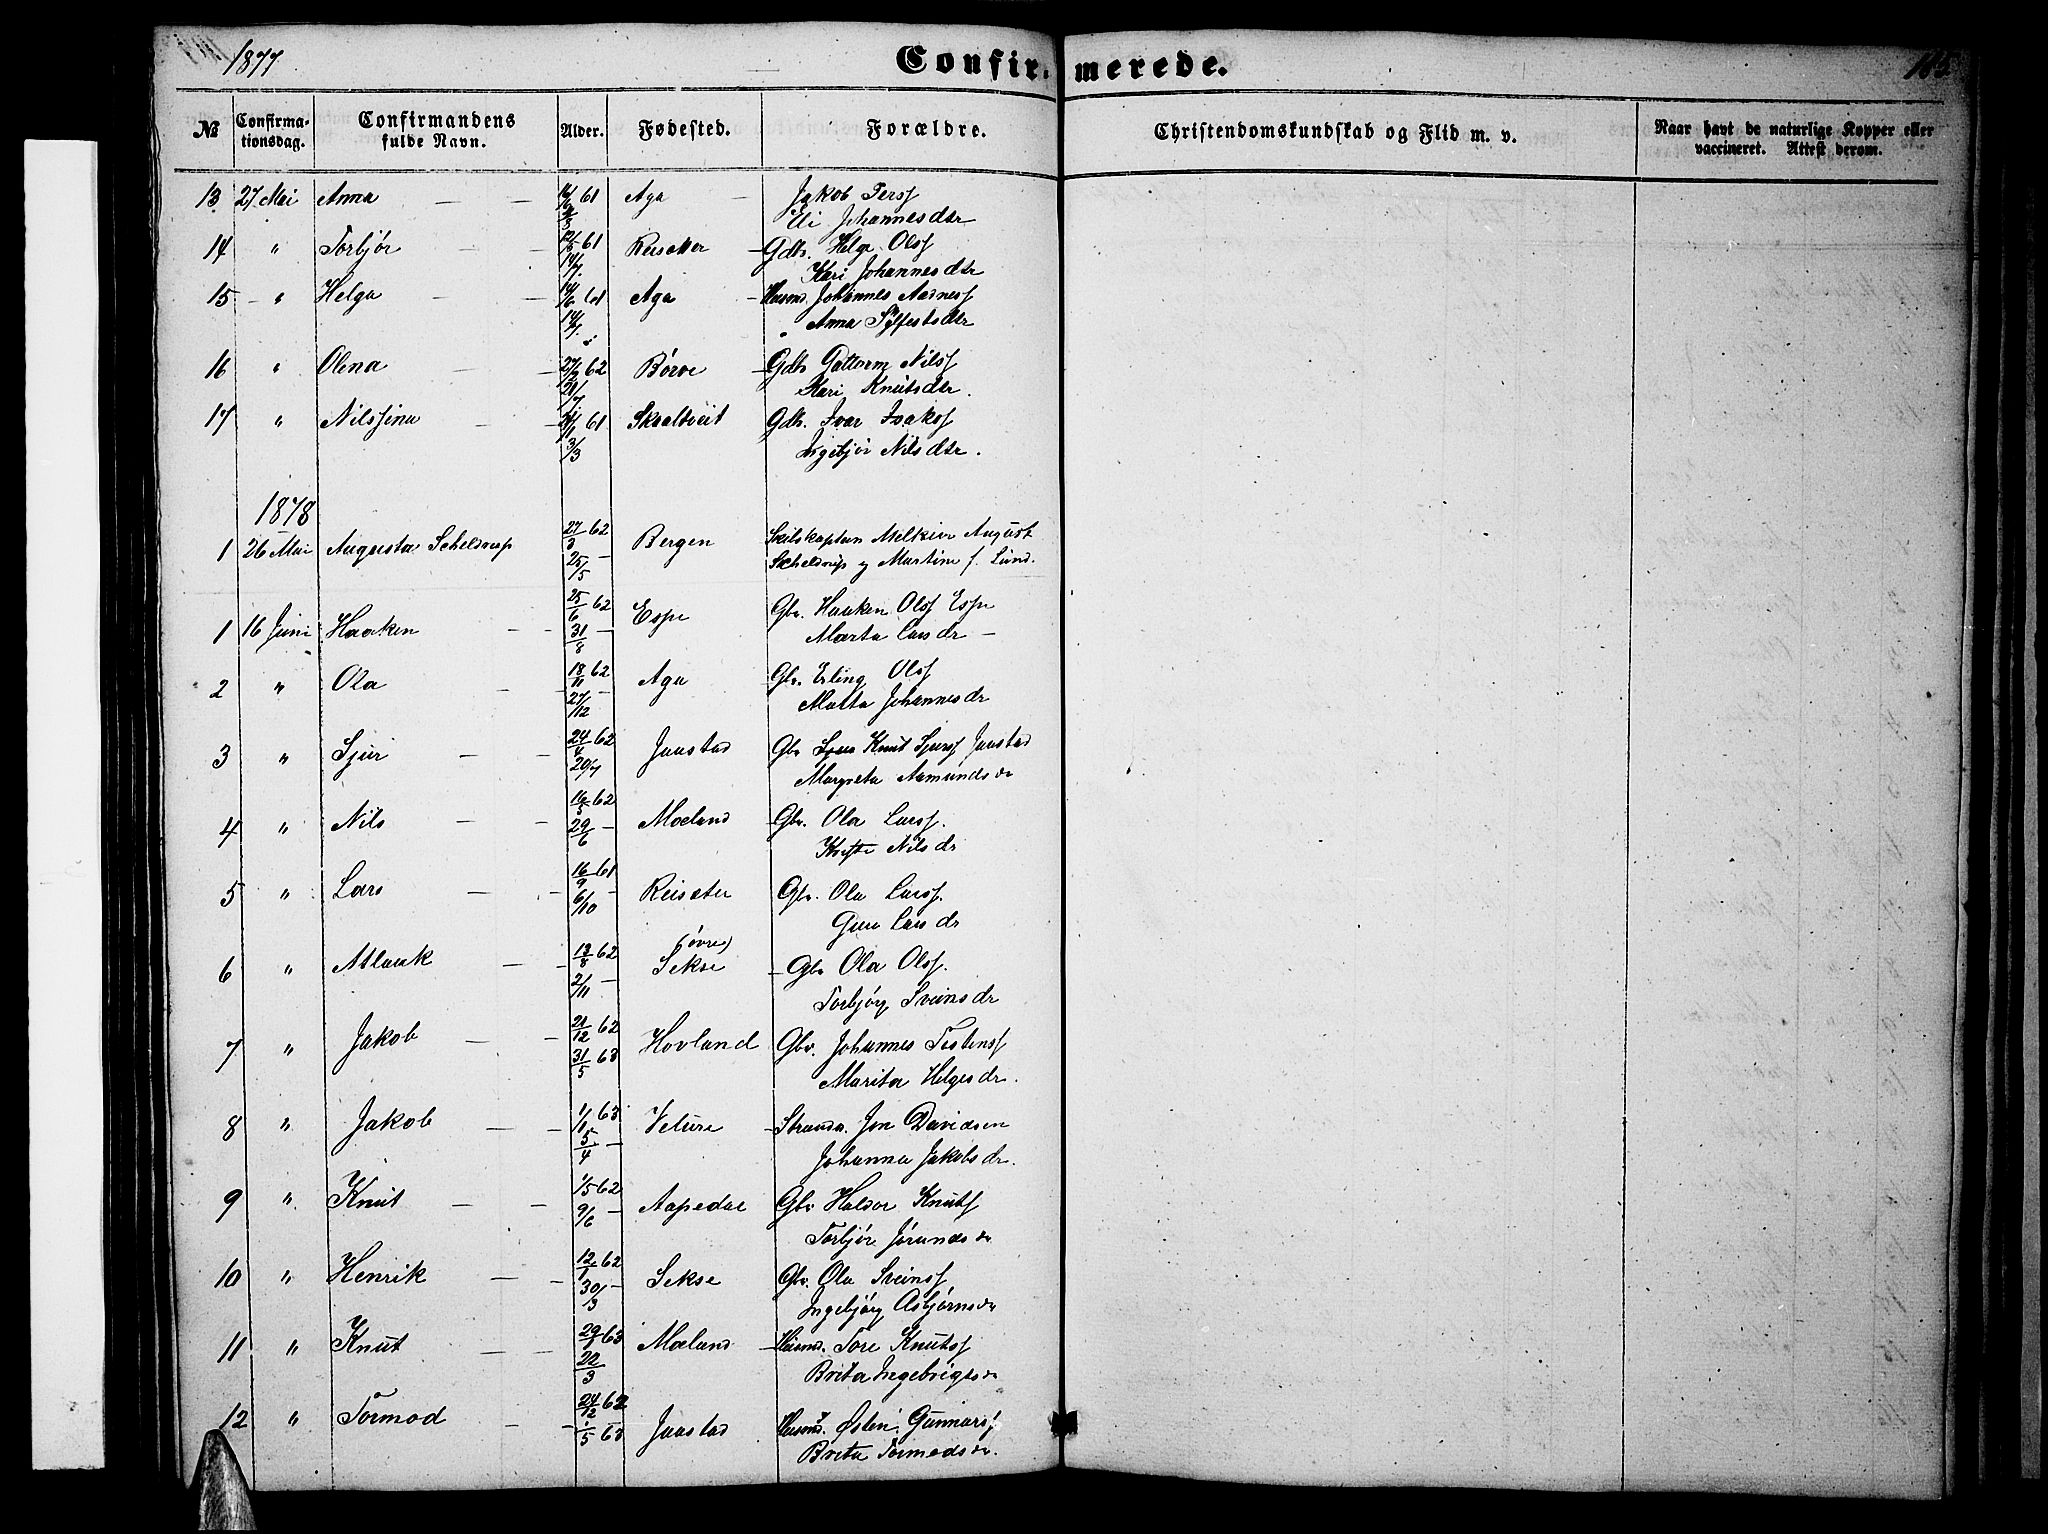 1877
Confirmerede.
№ Confirmationsdag. Confirmandens fulde Navn. Alder. Fødested. Forældre. Christendomskundskab og Flid m. v. Naar havt de naturlige Kopper eller vaccineret. Attest derom.
13 27 Mai Anna — — 61 Aga — Jakob Persf
Eli Johannesdtr
14 " Torbjør — — 61 Reisæter — Gdb. Helge Olsf
14/7 Kari Johannesdtr
15 — " Helga — — 14/6 61 Aga — Huusmd. Johannes Aadnesf
14/7 " Anna Sjffestsdtr
16 " Olena — — 62 Børve — Gdb Guttorm Nilsf
Kari Knutsdtr.
17 " Nilssina — — 61 Skraltveit Gdb. Ivar Isaksf
3/3 Ingebjør Nilsdtr.
1878
1 26 Mai Augusta Scheldrup 27/3 62 Bergen Skibskaptein Melkior August
25/5 — Scheldrup og Martine f. Lund.
1 16 Juni Haaken — — 25/6 62 Espe Gbr. Haaken Olsf Espe
31/8 — Marta Larsdr —
2 " Ola — — 18/11 62 Aga Gbr. Erling Olsf
27/12 — Marta Johannesdr
3 " Sjur — — 24/4 62 Jaastad Gbr Knut Sjursf Jaastad
20/7 Margreta Aamundsdr
4 " Nils — — 16/5 62 Mæland — Gbr. Ola Larsf.
29/6 — Kristi Nilsdr
5 " Lars — — 16/9 61 Reisæter Gbr. Ola Larsf.
6/10 — Guro Larsdr
6 " Atlauk — — 13/8 62 (øvre) Sekse — Gbr Ola Olsf.
2/11 — Torbjørg Sveinsdr
7 " Jakob — — 21/12 62 Hovland Gbr. Johannes Tostensf
31/5 63 Marita Helgesdr.
8 " Jakob — — 1/1 63 Veture — Strands. Jon Davidsen
5/4 — Johanna Jakobsdr.
9 " Knut — — 1/5 62 Aapedal Gbr Haldor Knutsf
9/6 — Torbjør Jørundsdr
10 " Henrik — — 12/1 62 Sekse Gbr. Ola Sveinsf
30/3 — Ingebjørg Asbjørnsdr
11 " Knut — — 29/1 63 Mæland — Huusmd. Tore Knutsf
22/3 Brita Ingebrigtsdr
12 " Tormod — — 24/12 62 Jaastad Huusmd. Østen Gunnarsf
/5 63 Brita Tormodsdr.